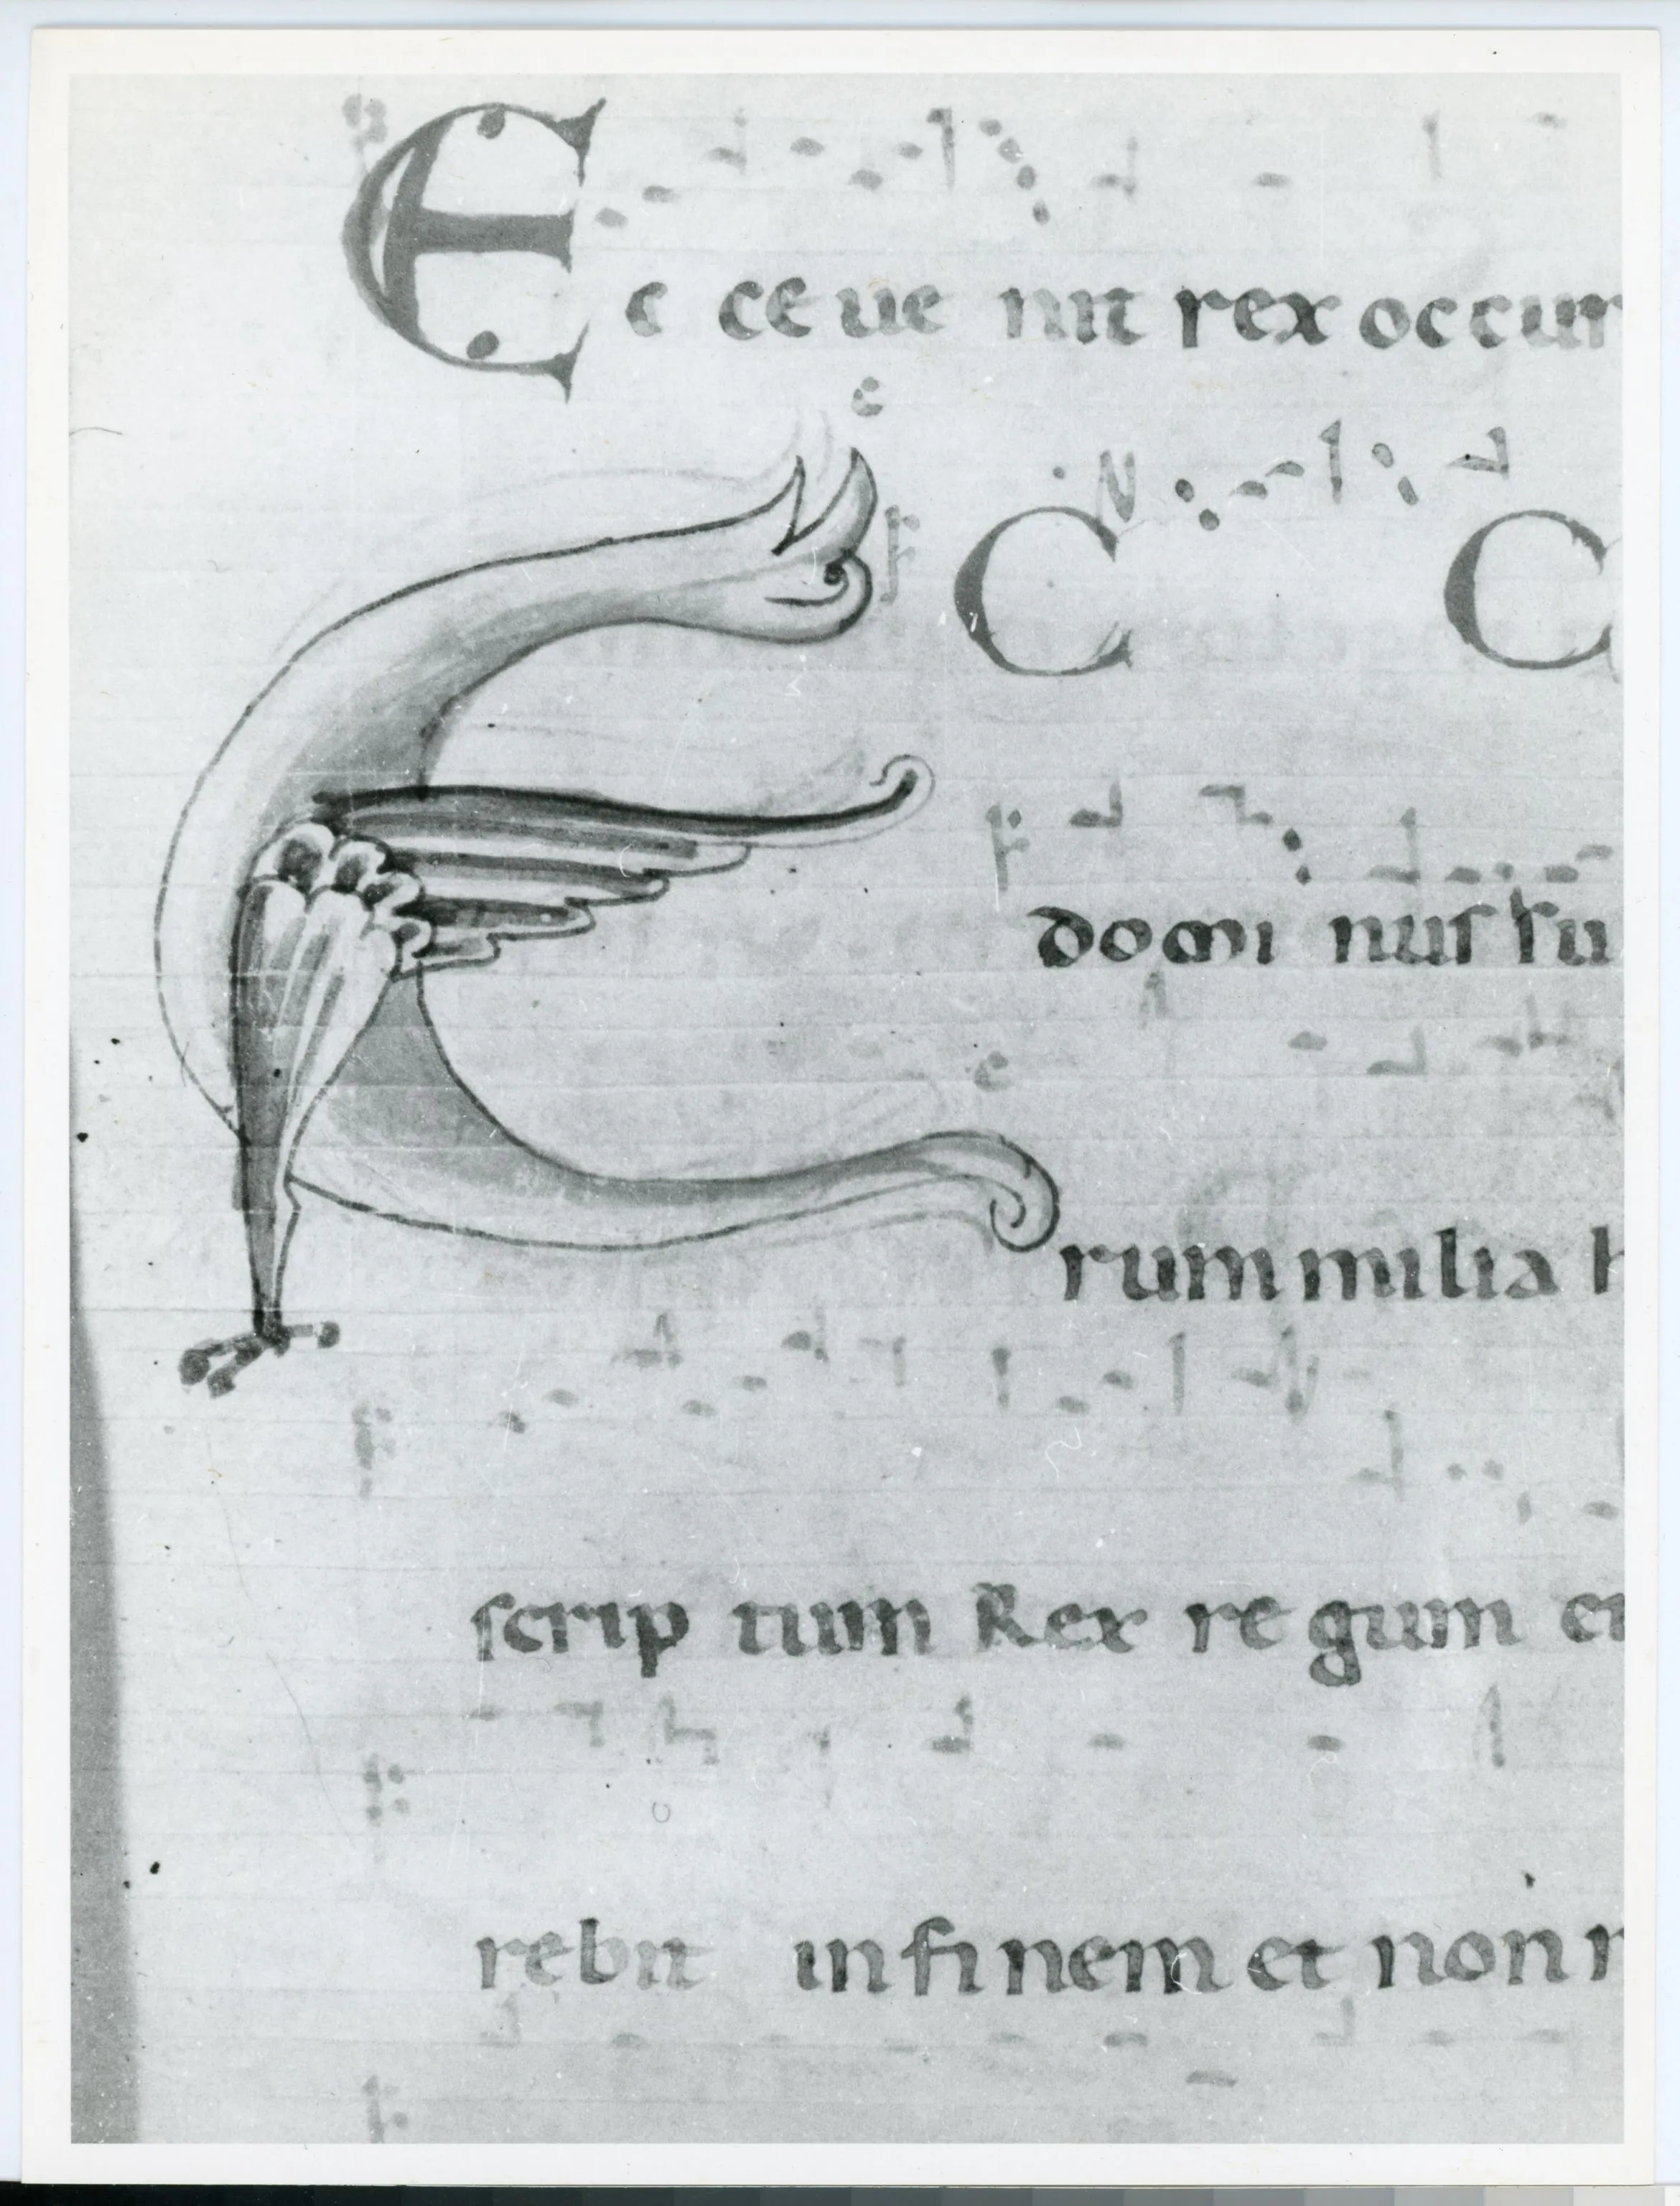 E c ce ue nit rex occur
E C C
domi nus su
rum milia h
scrip tum Rex re gum et
rebit in fi nem et non r